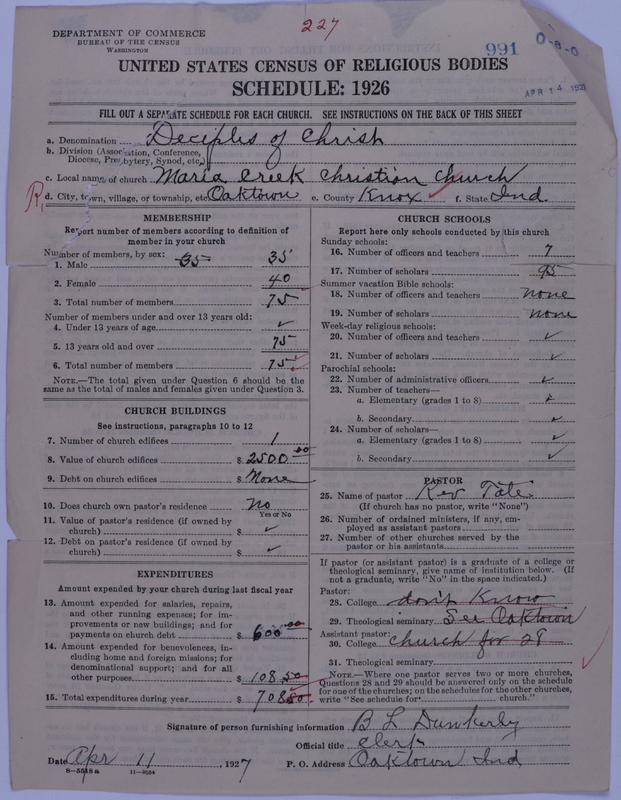 227
DEPARTMENT OF COMMERCE
BUREAU OF THE CENSUS
WASHINGTON
991
0-8-0
APR 14 192
UNITED STATES CENSUS OF RELIGIOUS BODIES
SCHEDULE: 1926
FILL OUT A SEPARATE SCHEDULE FOR EACH CHURCH. SEE INSTRUCTIONS ON THE BACK OF THIS SHEET
a. Denomination Deciples of Christ
b. Division (Association, Conference,
Diocese, Presbytery, Synod, etc.)
c. Local name of church Maria Creek Christian Church
R d. City, town, village, or township, etc. Oaktown e. County Knox f. State Ind.
MEMBERSHIP
Report number of members according to definition of
member in your church
Number of members, by sex:
1. Male 35 35
2. Female 40
3. Total number of members 75
Number of members under and over 13 years old:
4. Under 13 years of age ✓
5. 13 years old and over 75
6. Total number of members 75
NOTE.—The total given under Question 6 should be the
same as the total of males and females given under Question 3.
CHURCH BUILDINGS
See instructions, paragraphs 10 to 12
7. Number of church edifices 1
8. Value of church edifices $ 2500.00
9. Debt on church edifices $ None
10. Does church own pastor's residence No
Yes or No
11. Value of pastor's residence (if owned by
church) $ ✓
12. Debt on pastor's residence (if owned by
church) $ ✓
EXPENDITURES
Amount expended by your church during last fiscal year
13. Amount expended for salaries, repairs,
and other running expenses; for im-
provements or new buildings; and for
payments on church debt $ 600.00
14. Amount expended for benevolences, in-
cluding home and foreign missions; for
denominational support; and for all
other purposes $ 108.50
15. Total expenditures during year $ 708.50
CHURCH SCHOOLS
Report here only schools conducted by this church
Sunday schools:
16. Number of officers and teachers 7
17. Number of scholars 95
Summer vacation Bible schools:
18. Number of officers and teachers none
19. Number of scholars none
Week-day religious schools:
20. Number of officers and teachers ✓
21. Number of scholars ✓
Parochial schools:
22. Number of administrative officers ✓
23. Number of teachers—
a. Elementary (grades 1 to 8) ✓
b. Secondary ✓
24. Number of scholars—
a. Elementary (grades 1 to 8) ✓
b. Secondary ✓
PASTOR
25. Name of pastor Rev Tate
(If church has no pastor, write "None")
26. Number of ordained ministers, if any, em-
ployed as assistant pastors
27. Number of other churches served by the
pastor or his assistants
If pastor (or assistant pastor) is a graduate of a college or
theological seminary, give name of institution below. (If
not a graduate, write "No" in the space indicated.)
Pastor:
28. College don't Know
29. Theological seminary See Oaktown
Assistant pastor:
30. College church for 28
31. Theological seminary
NOTE.—Where one pastor serves two or more churches,
Questions 28 and 29 should be answered only on the schedule
for one of the churches; on the schedules for the other churches,
write "See schedule for church."
Signature of person furnishing information B L Dunkerly
Official title Clerk
Date Apr 11, 1927 P. O. Address Oaktown Ind
8-5518a 11-9084